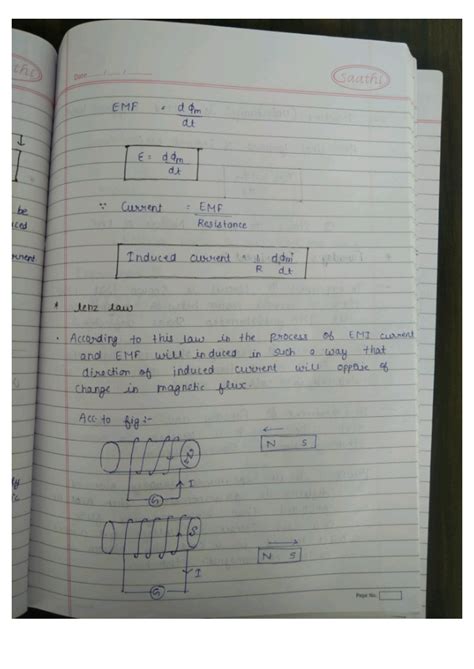 Date
Saathi
EMF = dϕm/dt
E = dϕm/dt
∵ Current = EMF/Resistance
Induced current = 1/R dϕm/dt
* lenz law
• According to this law in the process of EMI current
and EMF will induced in such a way that
direction of induced current will oppose of
change in magnetic flux.
Acc. to fig:-
N
N S
I
G
S
N S
I
G
Page No.